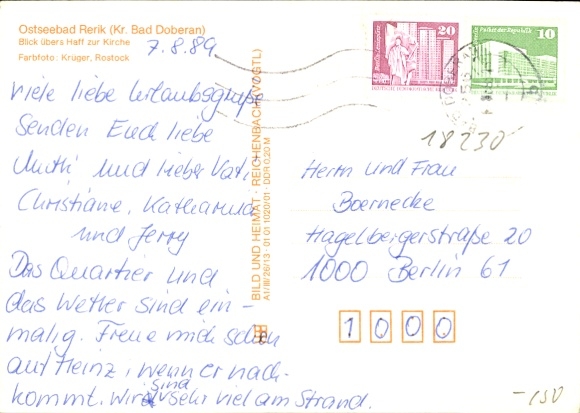 Ostseebad Rerik (Kr. Bad Doberan)
Blick übers Haff zur Kirche
Farbfoto: Krüger, Rostock
7.8.89
20
10
Palast der Republik
18230
Viele liebe Urlaubsgrüße
Senden Euch liebe
Mutti und lieber Vati,
Christiane, Katharina
und Jerry
Das Quartier und
das Wetter sind ein-
malig. Freue mich schon
auf Heinz, wenn er nach-
kommt. Wir sind sehr viel am Strand.
BILD UND HEIMAT · REICHENBACH (VOGTL)
A1/III/26/13 · 01 01 1020/01 · DDR 0,20 M
Herrn und Frau
Boernecke
Hagelbergerstraße 20
1000 Berlin 61
1000
-150